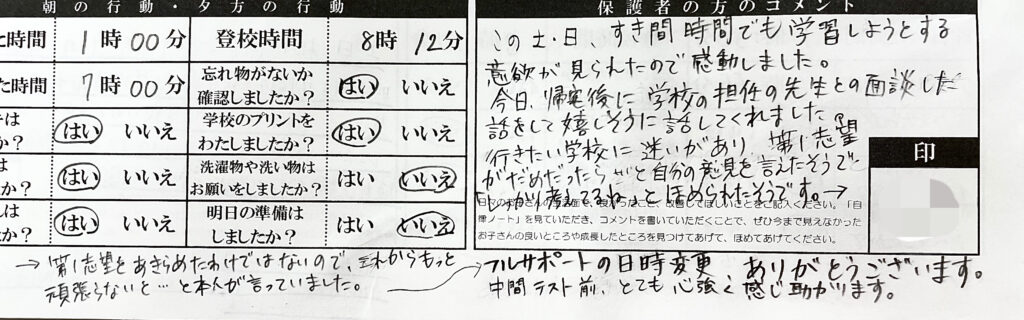 朝の行動・夕方の行動
た時間 1時00分 登校時間 8時12分
た時間 7時00分 忘れ物がないか確認しましたか? はい いいえ
は はい いいえ 学校のプリントをわたしましたか? はい いいえ
は たか? はい いいえ 洗濯物や洗い物はお願いをしましたか? はい いいえ
しは たか? はい いいえ 明日の準備はしましたか? はい いいえ
保護者の方のコメント
この土・日、すき間時間でも学習しようとする
意欲が見られたので感動しました。
今日、帰宅後に学校の担任の先生との面談した
話をして嬉しそうに話してくれました。
行きたい学校に迷いがあり、第1志望
がだめだったら など自分の意見を言えたそうで
しっかり考えてるね。とほめられたそうです。→
してほしいことをご記入ください。「自
律ノート」を見ていただき、コメントを書いていただくことで、ぜひ今まで見えなかった
お子さんの良いところや成長したところを見つけてあげて、ほめてあげてください。
印
→第1志望をあきらめたわけではないので、これからもっと
頑張らないと…と本人が言っていました。
フルサポートの日時変更、ありがとうございます。
中間テスト前、とても心強く感じ助かります。